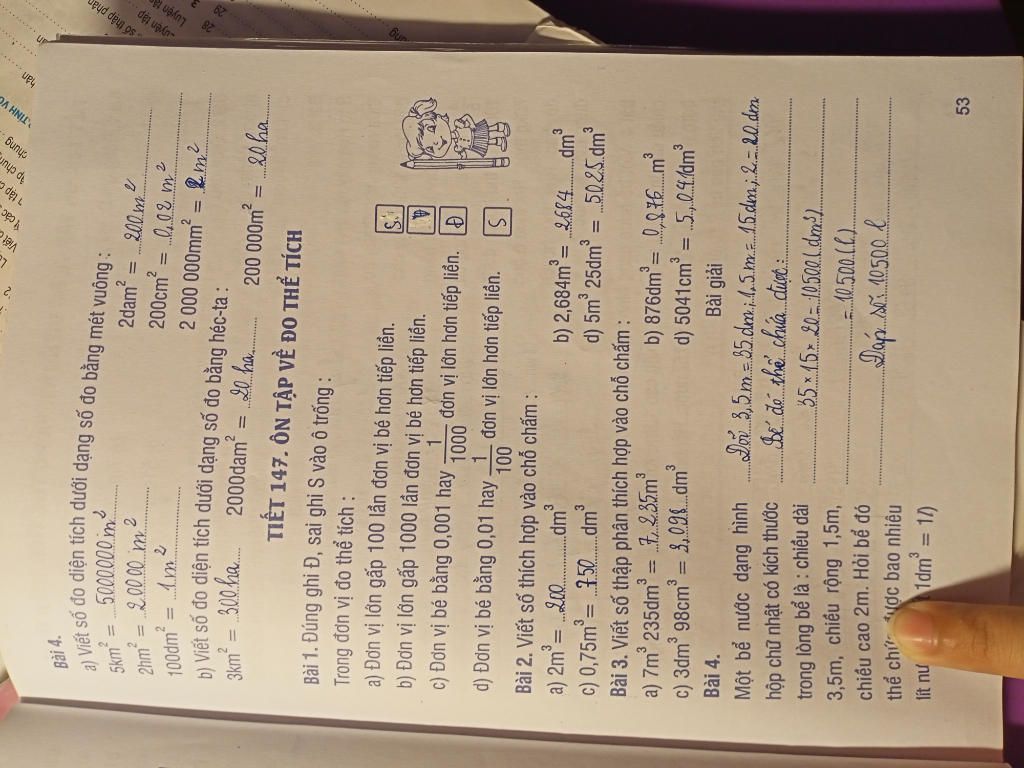 Bài 4.
a) Viết số đo diện tích dưới dạng số đo bằng mét vuông :
5km² = 5000000 m² 2dam² = 200 m²
2hm² = 20000 m² 200cm² = 0,02 m²
100dm² = 1 m² 2 000 000mm² = 2 m²
b) Viết số đo diện tích dưới dạng số đo bằng héc-ta :
3km² = 300 ha 2000dam² = 20 ha 200 000m² = 20 ha
TIẾT 147. ÔN TẬP VỀ ĐO THỂ TÍCH
Bài 1. Đúng ghi Đ, sai ghi S vào ô trống :
Trong đơn vị đo thể tích :
a) Đơn vị lớn gấp 100 lần đơn vị bé hơn tiếp liền. S
b) Đơn vị lớn gấp 1000 lần đơn vị bé hơn tiếp liền. Đ
c) Đơn vị bé bằng 0,001 hay 1/1000 đơn vị lớn hơn tiếp liền. Đ
d) Đơn vị bé bằng 0,01 hay 1/100 đơn vị lớn hơn tiếp liền. S
Bài 2. Viết số thích hợp vào chỗ chấm :
a) 2m³ = 200 dm³ b) 2,684m³ = 2684 dm³
c) 0,75m³ = 750 dm³ d) 5m³ 25dm³ = 5025 dm³
Bài 3. Viết số thập phân thích hợp vào chỗ chấm :
a) 7m³ 235dm³ = 7,235m³ b) 876dm³ = 0,876 m³
c) 3dm³ 98cm³ = 3,098 dm³ d) 5041cm³ = 5,041dm³
Bài 4. Bài giải
Một bể nước dạng hình
hộp chữ nhật có kích thước
trong lòng bể là : chiều dài
3,5m, chiều rộng 1,5m,
chiều cao 2m. Hỏi bể đó
thể chứa được bao nhiêu
lít 1dm³ = 1l)
Đổi 3,5m = 35 dm ; 1,5 m = 15 dm ; 2 = 20 dm
Bể đó thể chứa được :
35 × 15 × 20 = 10500 (dm³)
= 10500 (l)
Đáp số : 10500 l
53